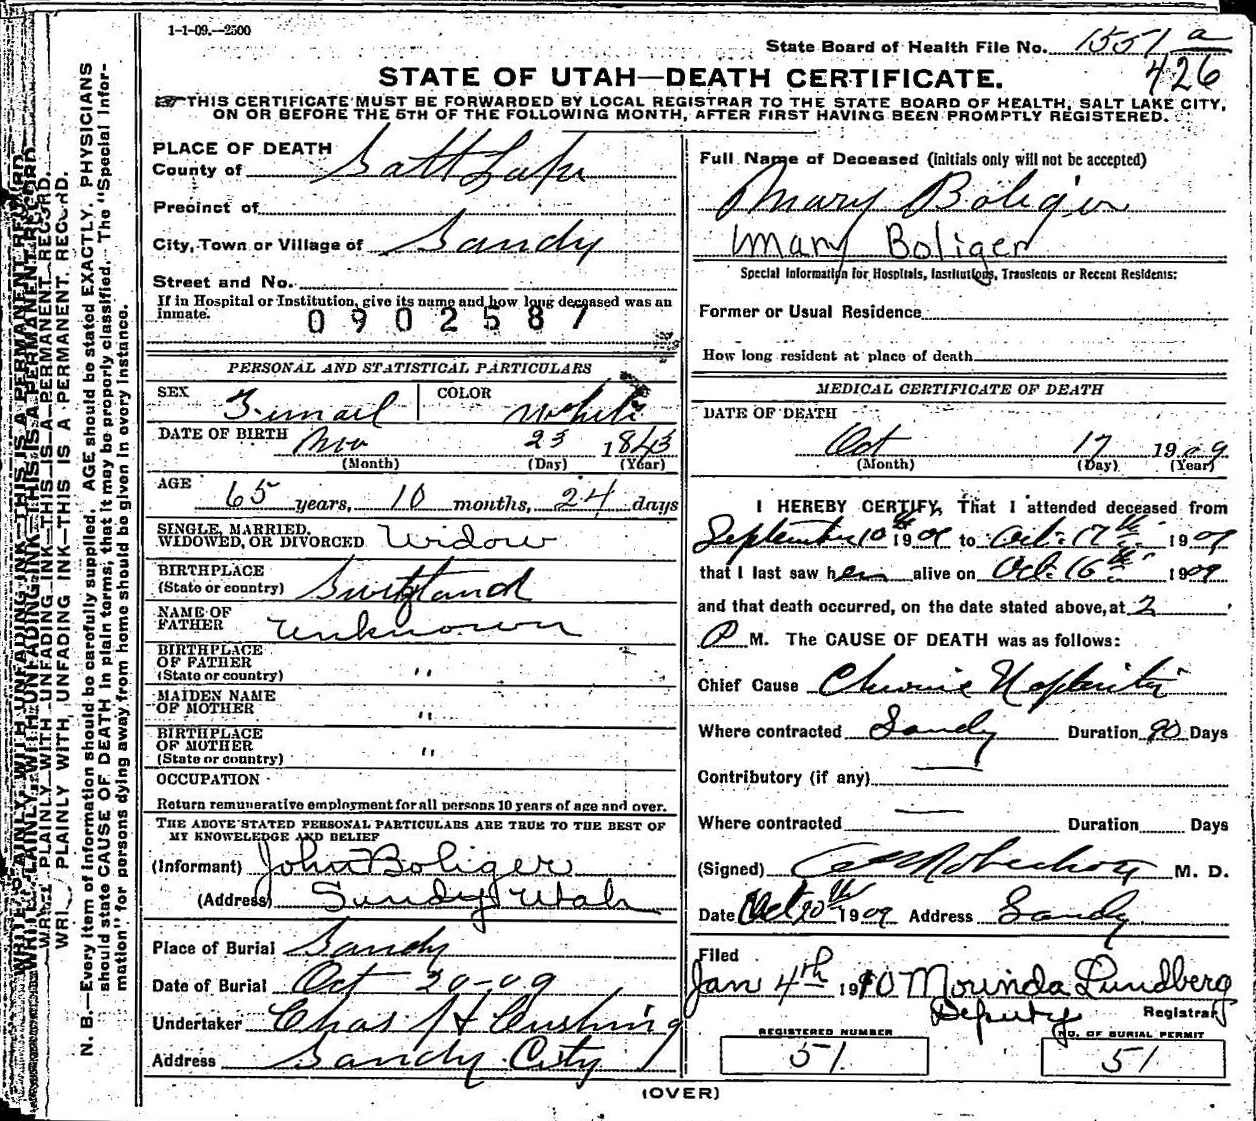 1-1-09.--2500
State Board of Health File No. 1551 a
426
STATE OF UTAH—DEATH CERTIFICATE.
THIS CERTIFICATE MUST BE FORWARDED BY LOCAL REGISTRAR TO THE STATE BOARD OF HEALTH, SALT LAKE CITY,
ON OR BEFORE THE 5TH OF THE FOLLOWING MONTH, AFTER FIRST HAVING BEEN PROMPTLY REGISTERED.
PLACE OF DEATH
County of Salt Lake
Precinct of
City, Town or Village of Sandy
Street and No.
If in Hospital or Institution, give its name and how long deceased was an
Inmate.
0902587
PERSONAL AND STATISTICAL PARTICULARS
SEX Femail COLOR White
DATE OF BIRTH Nov 23 1843
(Month) (Day) (Year)
AGE 65 years, 10 months, 24 days
SINGLE, MARRIED,
WIDOWED, OR DIVORCED Widow
BIRTHPLACE
(State or country) Switzland
NAME OF
FATHER Unknown
BIRTHPLACE
OF FATHER
(State or country) "
MAIDEN NAME
OF MOTHER "
BIRTHPLACE
OF MOTHER
(State or country) "
OCCUPATION
Return remunerative employment for all persons 10 years of age and over.
THE ABOVE STATED PERSONAL PARTICULARS ARE TRUE TO THE BEST OF
MY KNOWLEDGE AND BELIEF
(Informant) John Boliger
(Address) Sandy Utah
Place of Burial Sandy
Date of Burial Oct 20-09
Undertaker Chas H Cushing
Address Sandy City
Full Name of Deceased (initials only will not be accepted)
Mary Boliger
Mary Boliger
Special Information for Hospitals, Institutions, Transients or Recent Residents:
Former or Usual Residence
How long resident at place of death
MEDICAL CERTIFICATE OF DEATH
DATE OF DEATH
Oct 17 1909
(Month) (Day) (Year)
I HEREBY CERTIFY, That I attended deceased from
September 10th 1909 to Oct. 17th 1909
that I last saw her alive on Oct. 16th 1909
and that death occurred, on the date stated above, at 2
P M. The CAUSE OF DEATH was as follows:
Chief Cause Chronic Nephritis
Where contracted Sandy Duration 90 Days
Contributory (if any) —
Where contracted — Duration Days
(Signed) M. D.
Date Oct 20th 1909 Address Sandy
Filed
Jan 4th 1910 Mourinda Lundberg
Deputy Registrar
REGISTERED NUMBER
51
NO. OF BURIAL PERMIT
51
(OVER)
WRITE PLAINLY, WITH UNFADING INK—THIS IS A PERMANENT RECORD.
N. B.—Every item of information should be carefully supplied. AGE should be stated EXACTLY. PHYSICIANS
should state CAUSE OF DEATH in plain terms, that it may be properly classified. The "Special Infor-
mation" for persons dying away from home should be given in every instance.